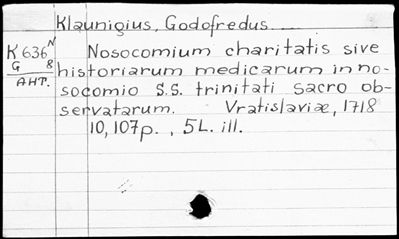 Klaunigius, Godofredus
K 636 N
G 8
AHT.
Nosocomium charitatis sive
historiarum medicarum in no-
socomio S.S. trinitati sacro ob-
servatarum. Vratislaviæ, 1718
10, 107p., 5 L. ill.